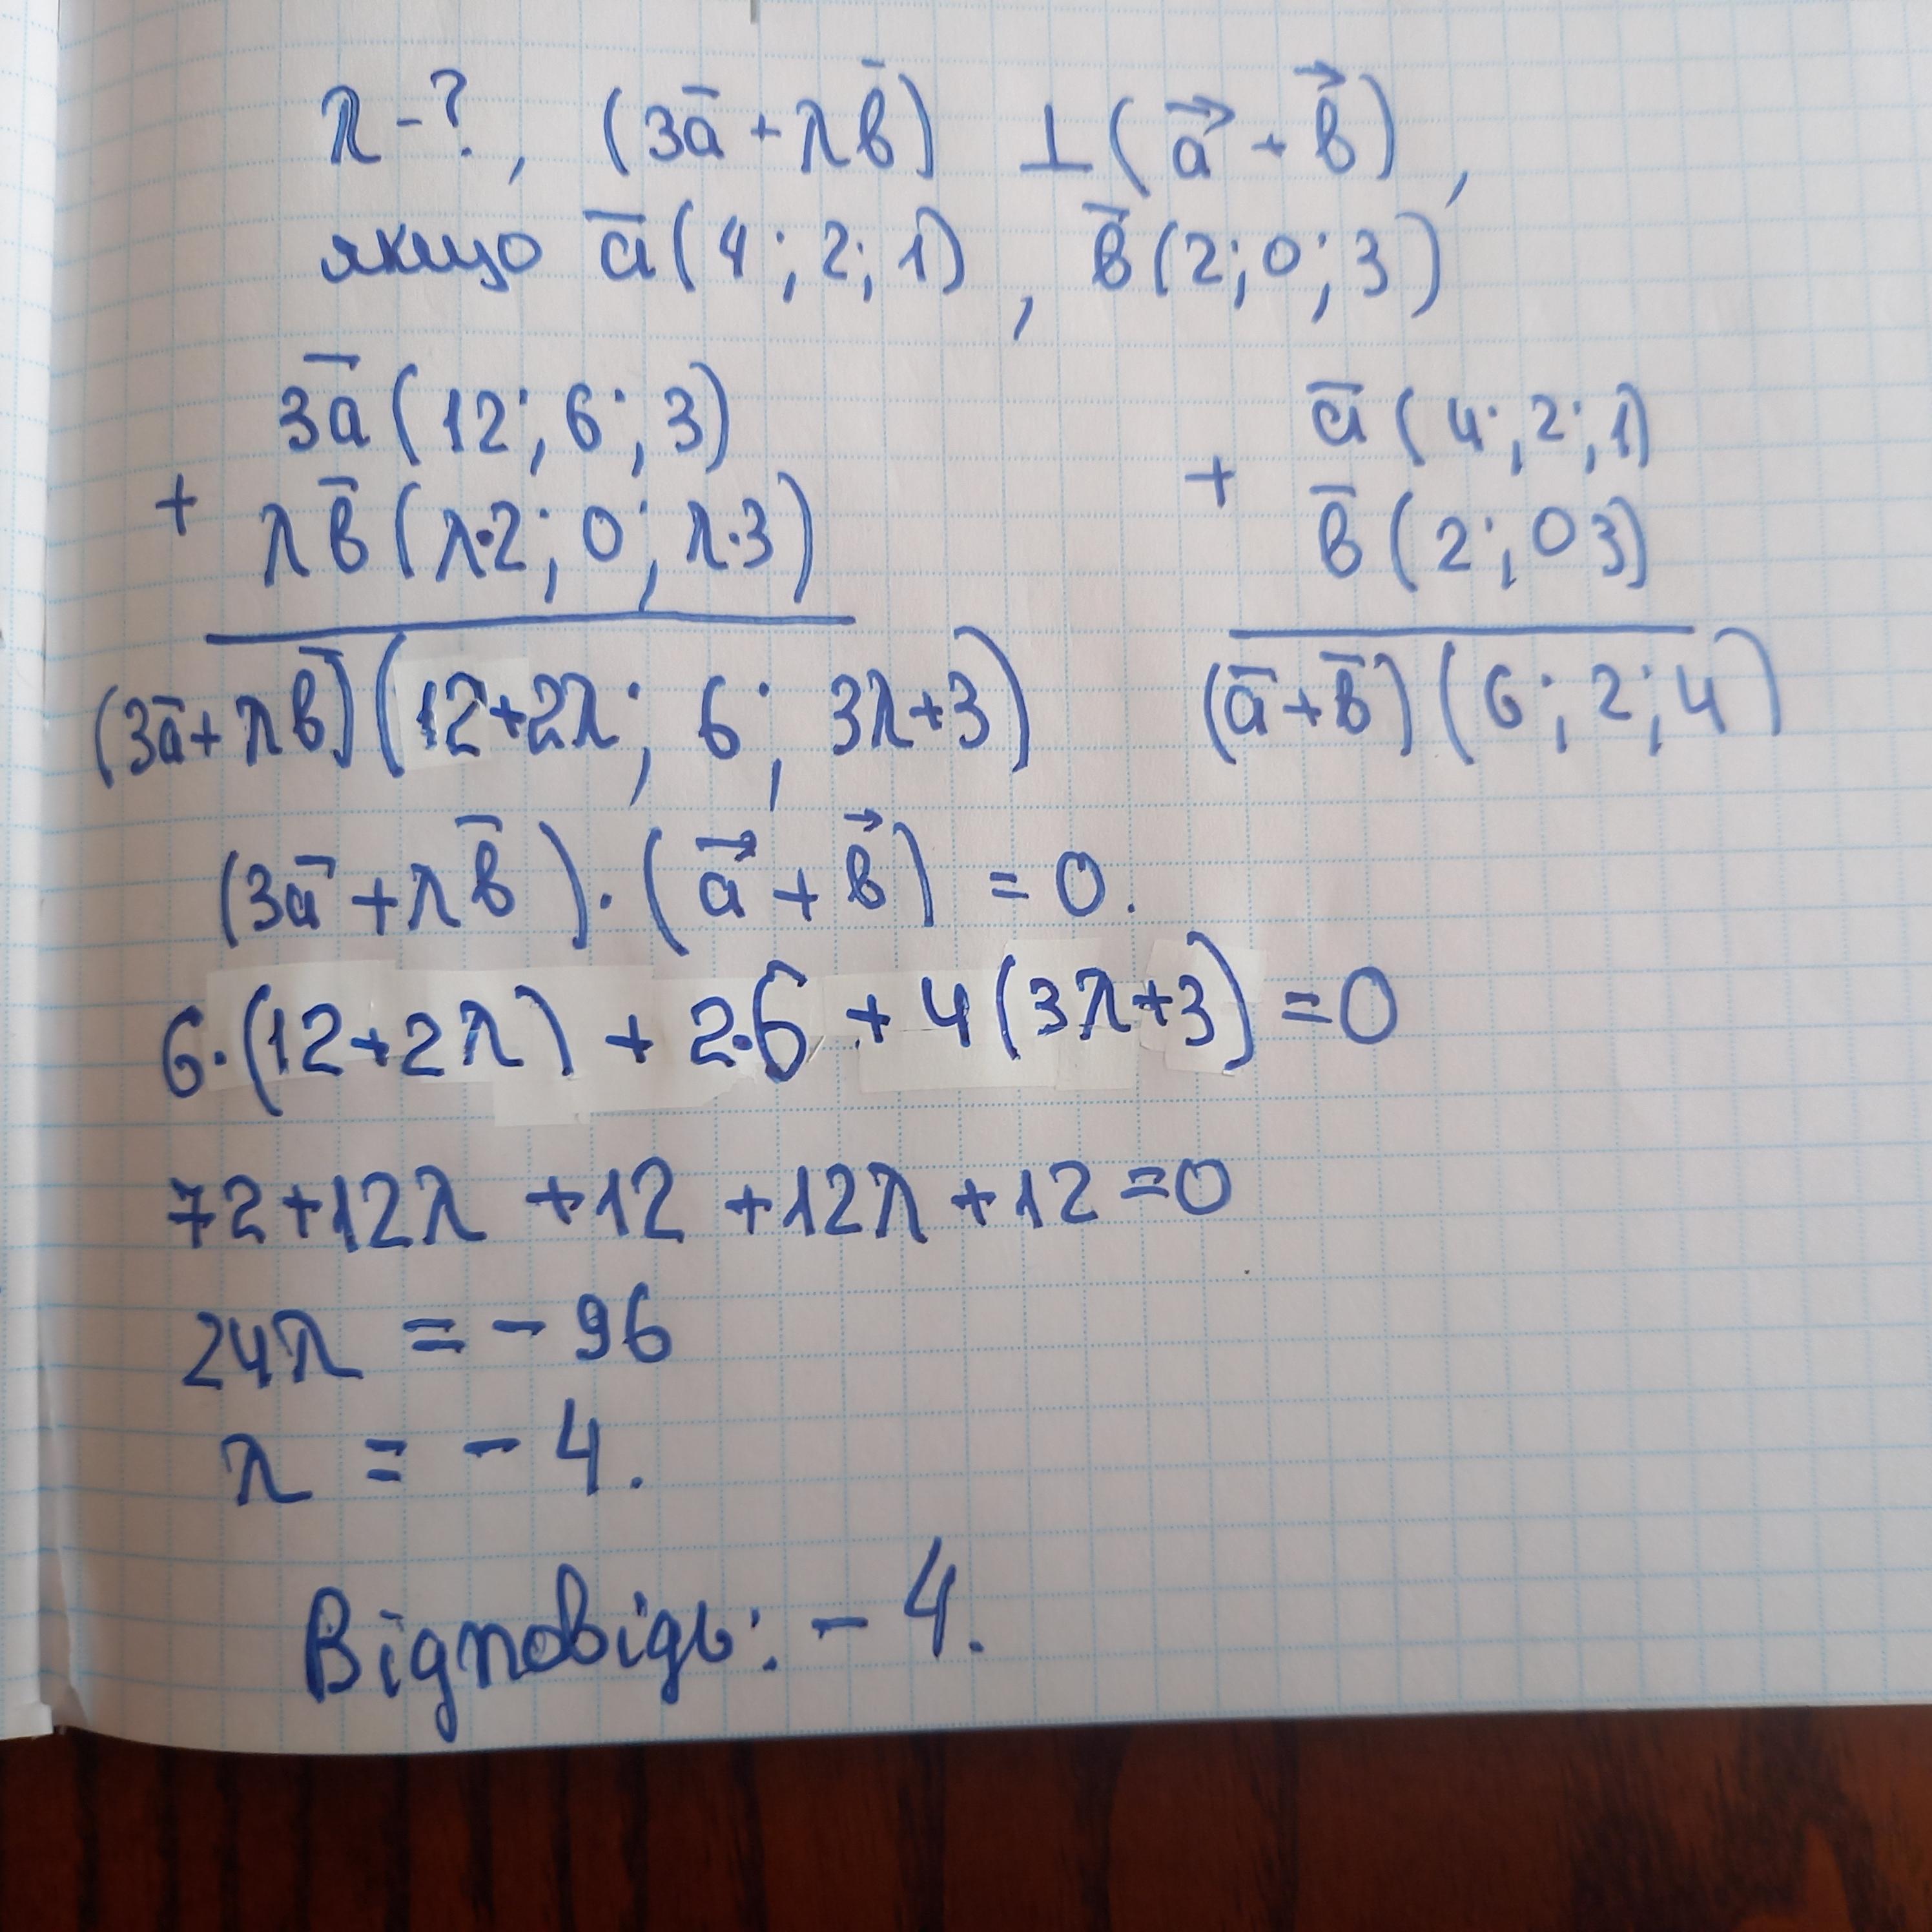 λ - ?, (3a̅ + λb̅) ⊥ (a⃗ + b⃗),
якщо a̅(4; 2; 1), b̅(2; 0; 3)
3a̅(12; 6; 3)
+ λb̅(λ·2; 0; λ·3)
(3a̅+λb̅)(12+2λ; 6; 3λ+3)
a̅(4; 2; 1)
+ b̅(2; 0 3)
(a̅+b̅)(6; 2; 4)
(3a̅ + λb̅)·(a⃗ + b⃗) = 0.
6·(12+2λ) + 2·6 + 4(3λ+3) = 0
72+12λ +12 +12λ +12 = 0
24λ = - 96
λ = - 4.
Відповідь: - 4.